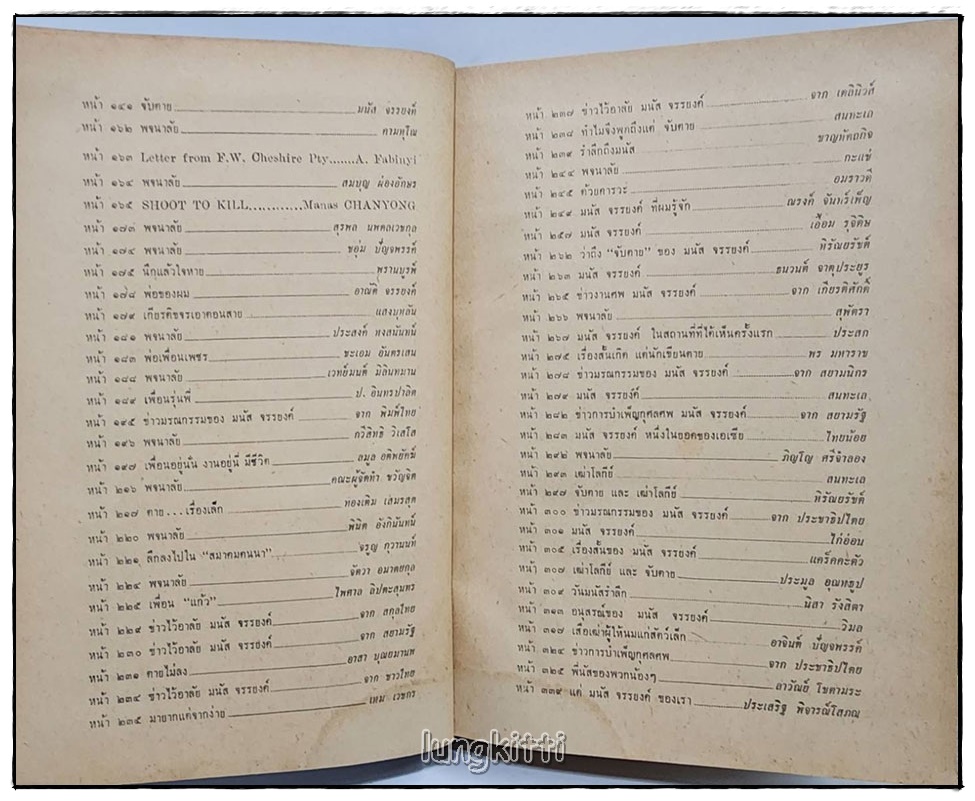 หน้า ๑๔๑ จับตาย มนัส จรรยงค์
หน้า ๑๖๒ พจนาลัย ดามทุโณ
หน้า ๑๖๓ Letter from F.W. Cheshire Pty.......A. Fabinyi
หน้า ๑๖๔ พจนาลัย สมบุญ ผ่องอักษร
หน้า ๑๖๕ SHOOT TO KILL............Manas CHANYONG
หน้า ๑๗๓ พจนาลัย สุรพล นพคลเวชกุล
หน้า ๑๗๔ พจนาลัย ชอุ่ม ปัญจพรรค์
หน้า ๑๗๕ นึกแล้วใจหาย พรานบูรพ์
หน้า ๑๗๘ พ่อของผม อาณัติ จรรยงค์
หน้า ๑๗๙ เกียรติขจรเอาตอนสาย แสงบุหลัน
หน้า ๑๘๑ พจนาลัย ประสงค์ หงสนันทน์
หน้า ๑๘๓ พ่อเพื่อนเพชร ชะเอม อันตรเสน
หน้า ๑๘๘ พจนาลัย เวทย์มนต์ มิลินทมาน
หน้า ๑๘๙ เพื่อนรุ่นพี่ ป. อินทรปาลิต
หน้า ๑๙๕ ข่าวมรณกรรมของ มนัส จรรยงค์ จาก พิมพ์ไทย
หน้า ๑๙๖ พจนาลัย กวีสิทธิ วิเสโส
หน้า ๑๙๗ เพื่อนอยู่นั่น งานอยู่นี่ มีชีวิต ลมูล อติพยัคฆ์
หน้า ๒๑๖ พจนาลัย คณะผู้จัดทำ ขวัญจิต
หน้า ๒๑๗ ตาย...เรื่องเล็ก ทองเติม เสมรสุต
หน้า ๒๒๐ พจนาลัย พินิต อังกินันทน์
หน้า ๒๒๑ ลึกลงไปใน “สมาคมคนนา” จรูญ กุวานนท์
หน้า ๒๒๔ พจนาลัย จัตวา อมาตยกุล
หน้า ๒๒๕ เพื่อน “แก้ว” ไพศาล ลิปตะสุนทร
หน้า ๒๒๙ ข่าวไว้อาลัย มนัส จรรยงค์ จาก สกุลไทย
หน้า ๒๓๐ ข่าวไว้อาลัย มนัส จรรยงค์ จาก สยามรัฐ
หน้า ๒๓๑ ตายไม่ลง อาสา บุณยมานพ
หน้า ๒๓๔ ข่าวไว้อาลัย มนัส จรรยงค์ จาก ชาวไทย
หน้า ๒๓๕ มายากแต่จากง่าย เหม เวชกร
หน้า ๒๓๗ ข่าวไว้อาลัย มนัส จรรยงค์ จาก เดลินิวส์
หน้า ๒๓๘ ทำไมจึงพูกถึงแต่ จับตาย สนทะเล
หน้า ๒๓๙ รำลึกถึงมนัส ชาญหัตถกิจ
หน้า ๒๔๔ พจนาลัย กะแช่
หน้า ๒๔๕ ด้วยคารวะ อมราวดี
หน้า ๒๔๙ มนัส จรรยงค์ ที่ผมรู้จัก ณรงค์ จันทร์เพ็ญ
หน้า ๒๕๗ มนัส จรรยงค์ เอื้อม รุจิดิษ
หน้า ๒๖๒ ว่าถึง “จับตาย” ของ มนัส จรรยงค์ หิรัณยรัชต์
หน้า ๒๖๓ มนัส จรรยงค์ ธนวนต์ จาตุประยูร
หน้า ๒๖๕ ข่าวงานศพ มนัส จรรยงค์ จาก เกียรติศักดิ์
หน้า ๒๖๖ พจนาลัย สุพัตรา
หน้า ๒๖๗ มนัส จรรยงค์ ในสถานที่ที่ได้เห็นครั้งแรก ประสก
หน้า ๒๗๕ เรื่องสั้นเกิด แต่นักเขียนตาย พร มหาราช
หน้า ๒๗๘ ข่าวมรณกรรมของ มนัส จรรยงค์ จาก สยามนิกร
หน้า ๒๗๙ มนัส จรรยงค์ สนทะเล
หน้า ๒๘๒ ข่าวการบำเพ็ญกุศลศพ มนัส จรรยงค์ จาก สยามรัฐ
หน้า ๒๘๓ มนัส จรรยงค์ หนึ่งในยอดของเอเซีย ไทยน้อย
หน้า ๒๙๒ พจนาลัย ภิญโญ ศรีจำลอง
หน้า ๒๙๓ เฒ่าโลกีย์ สนทะเล
หน้า ๒๙๗ จับตาย และ เฒ่าโลกีย์ หิรัณยรัชต์
หน้า ๓๐๐ ข่าวมรณกรรมของ มนัส จรรยงค์ จาก ประชาธิปไตย
หน้า ๓๐๑ มนัส จรรยงค์ ไก่อ่อน
หน้า ๓๐๕ เรื่องสั้นของ มนัส จรรยงค์ แคร็คคะตัว
หน้า ๓๐๗ เฒ่าโลกีย์ และ จับตาย ประมูล อุณหธูป
หน้า ๓๐๙ วันมนัสรำลึก นิสา รังสิตา
หน้า ๓๑๓ อนุสรณ์ของ มนัส จรรยงค์ วิมล
หน้า ๓๑๗ เสือเฒ่าผู้ให้นมแก่สัตว์เล็ก อาจินต์ ปัญจพรรค์
หน้า ๓๒๔ ข่าวการบำเพ็ญกุศลศพ จาก ประชาธิปไตย
หน้า ๓๒๕ พี่นัสของพวกน้องๆ ลาวัณย์ โชตามระ
หน้า ๓๓๙ แด่ มนัส จรรยงค์ ของเรา ประเสริฐ พิจารณ์โสภณ
lungkitti